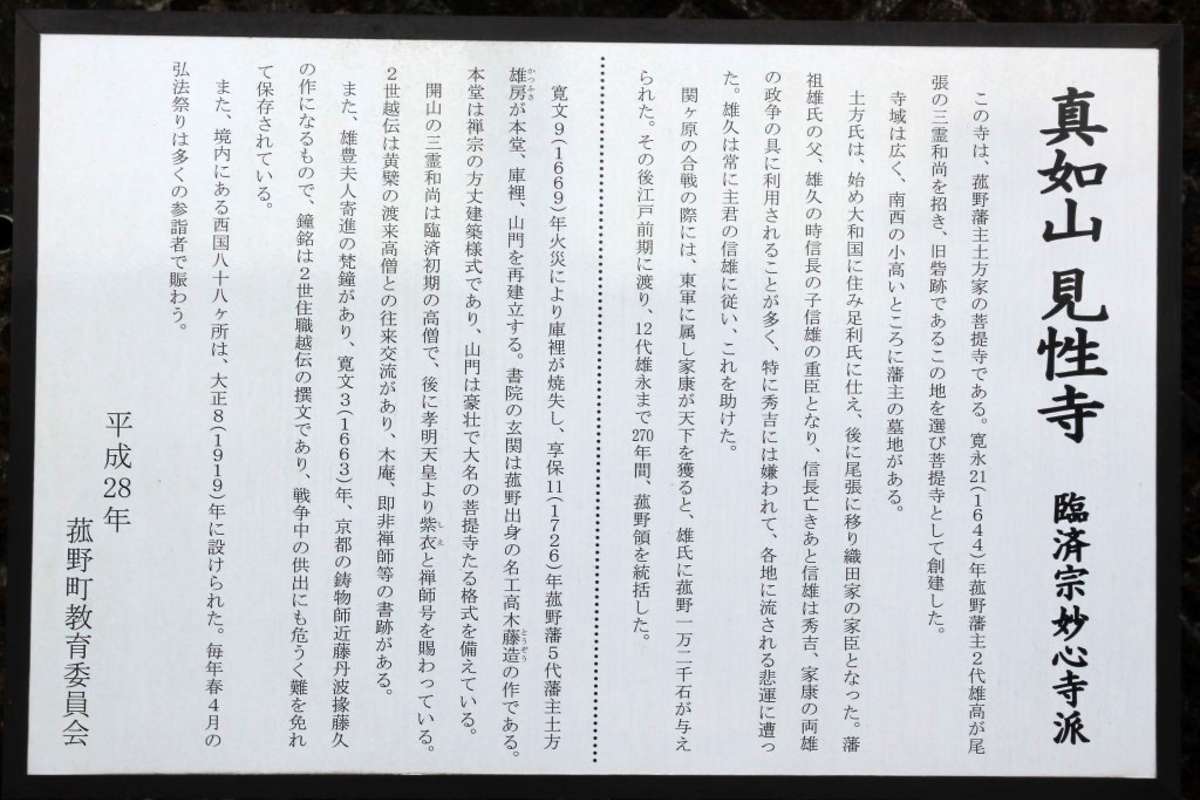 真如山 見性寺 臨済宗妙心寺派
この寺は、菰野藩主土方家の菩提寺である。寛永21(1644)年菰野藩主2代雄高が尾
張の三霊和尚を招き、旧砦跡であるこの地を選び菩提寺として創建した。
寺域は広く、南西の小高いところに藩主の墓地がある。
土方氏は、始め大和国に住み足利氏に仕え、後に尾張に移り織田家の家臣となった。藩
祖雄氏の父、雄久の時信長の子信雄の重臣となり、信長亡きあと信雄は秀吉、家康の両雄
の政争の具に利用されることが多く、特に秀吉には嫌われて、各地に流される悲運に遭っ
た。雄久は常に主君の信雄に従い、これを助けた。
関ヶ原の合戦の際には、東軍に属し家康が天下を獲ると、雄氏に菰野一万二千石が与え
られた。その後江戸前期に渡り、12代雄永まで270年間、菰野領を統括した。
寛文9(1669)年火災により庫裡が焼失し、享保11(1726)年菰野藩5代藩主土方
雄房かつふさが本堂、庫裡、山門を再建立する。書院の玄関は菰野出身の名工高木藤造とうぞうの作である。
本堂は禅宗の方丈建築様式であり、山門は豪壮で大名の菩提寺たる格式を備えている。
開山の三霊和尚は臨済初期の高僧で、後に孝明天皇より紫衣しえと禅師号を賜わっている。
2世越伝は黄檗の渡来高僧との往来交流があり、木庵、即非禅師等の書跡がある。
また、雄豊夫人寄進の梵鐘があり、寛文3(1663)年、京都の鋳物師近藤丹波掾藤久
の作になるもので、鐘銘は2世住職越伝の撰文であり、戦争中の供出にも危うく難を免れ
て保存されている。
また、境内にある西国八十八ヶ所は、大正8(1919)年に設けられた。毎年春4月の
弘法祭りは多くの参詣者で賑わう。
平成28年
菰野町教育委員会